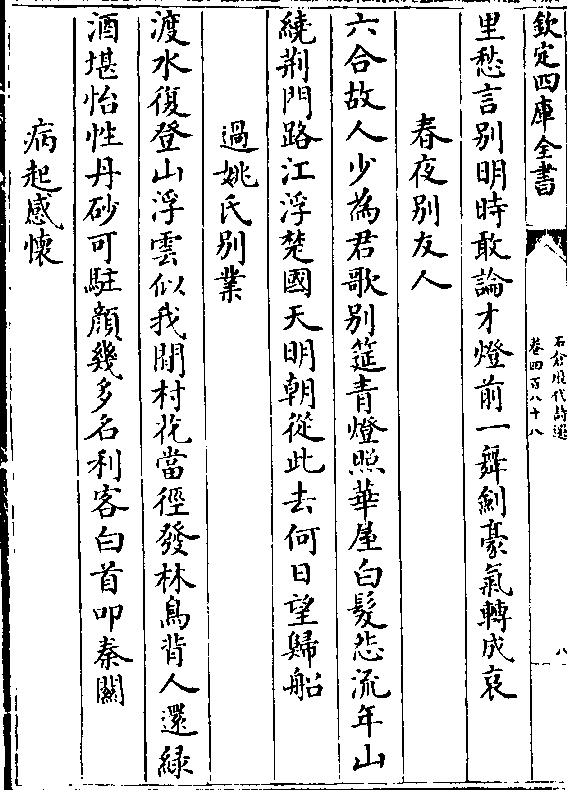 欽定四庫全書
石倉歷代詩選
卷四百八十八
八
里愁言别明時敢論才燈前一舞劍豪氣轉成哀
春夜别友人
六合故人少為君歌别筵青燈照華屋白髮悲流年山
繞荆門路江浮楚國天明朝從此去何日望歸船
過姚氏别業
渡水復登山浮雲似我閒村花當徑發林鳥背人還緑
酒堪怡性丹砂可駐顔幾多名利客白首叩秦關
病起感懷